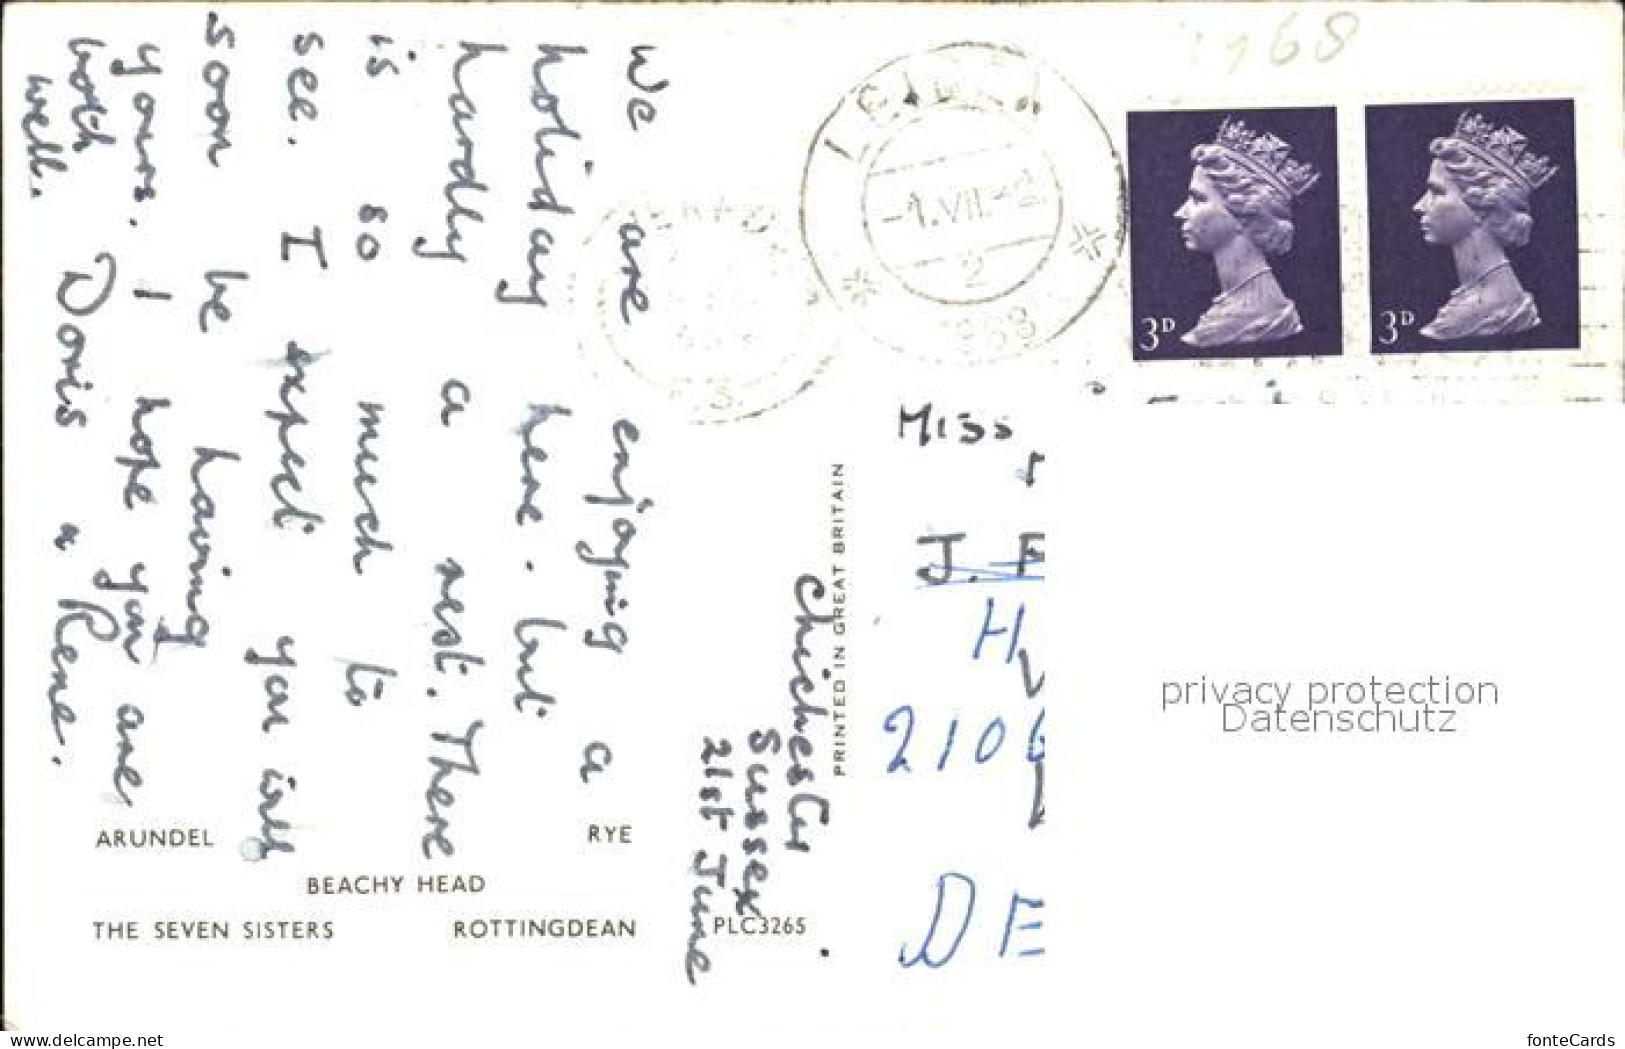 1968
LEIDEN
-1.VII.-2
2
1968
3D
3D
Chichester
Sussex
21st June
We are enjoying a
holiday here. but
hardly a rest. There
is so much to
see. I expect you will
soon be having
yours. I hope you are
both
well.
Doris & Rene.
Miss
J. F
H
2106
DE
PRINTED IN GREAT BRITAIN
ARUNDEL
RYE
BEACHY HEAD
THE SEVEN SISTERS
ROTTINGDEAN
PLC3265
privacy protection
Datenschutz
www.delcampe.net
fonteCards